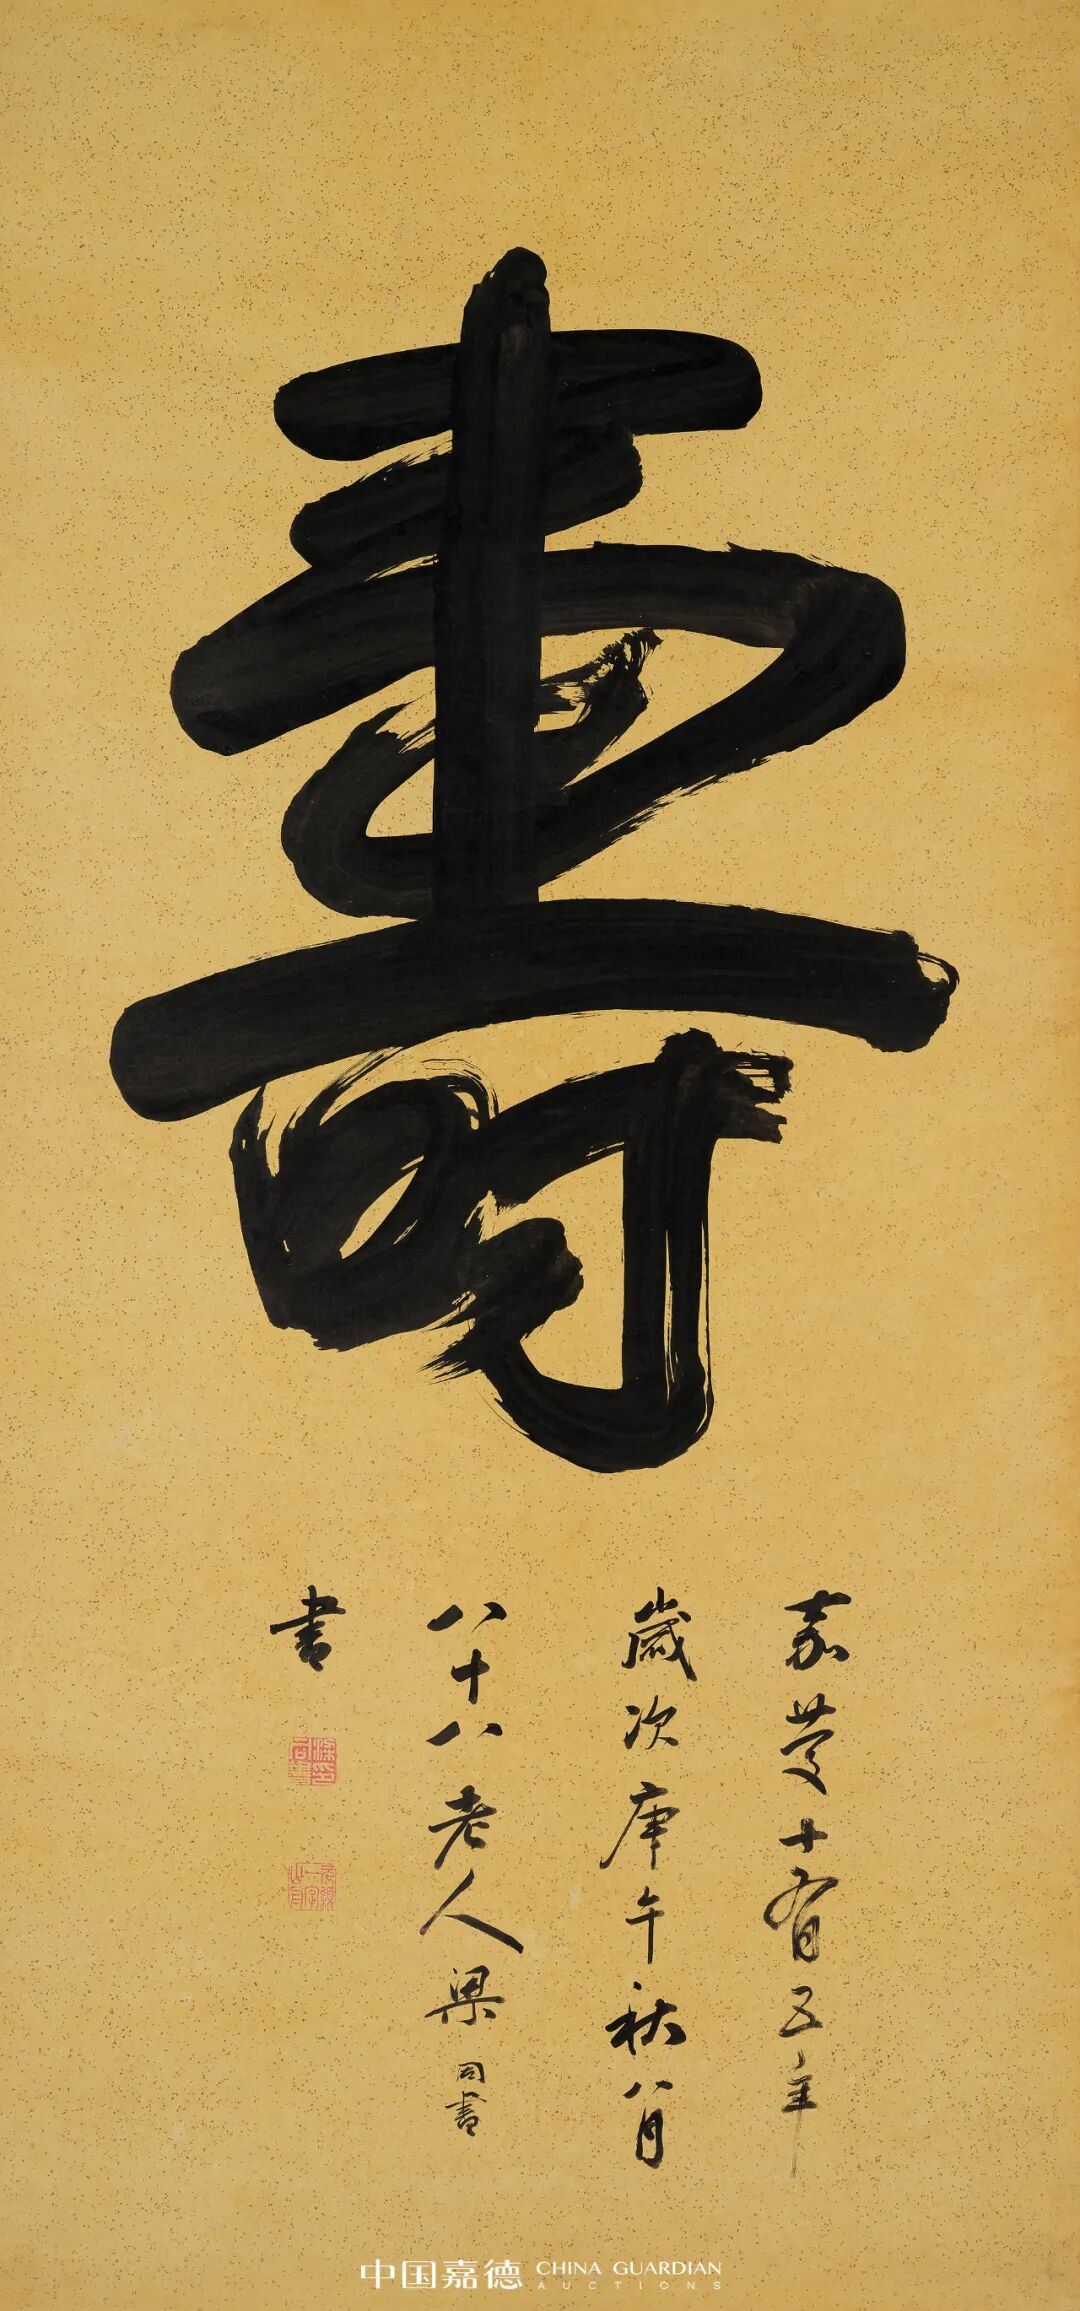 壽
嘉慶十有五年
歲次庚午秋八月
八十八老人梁同書
書
中国嘉德 CHINA GUARDIAN
AUCTIONS